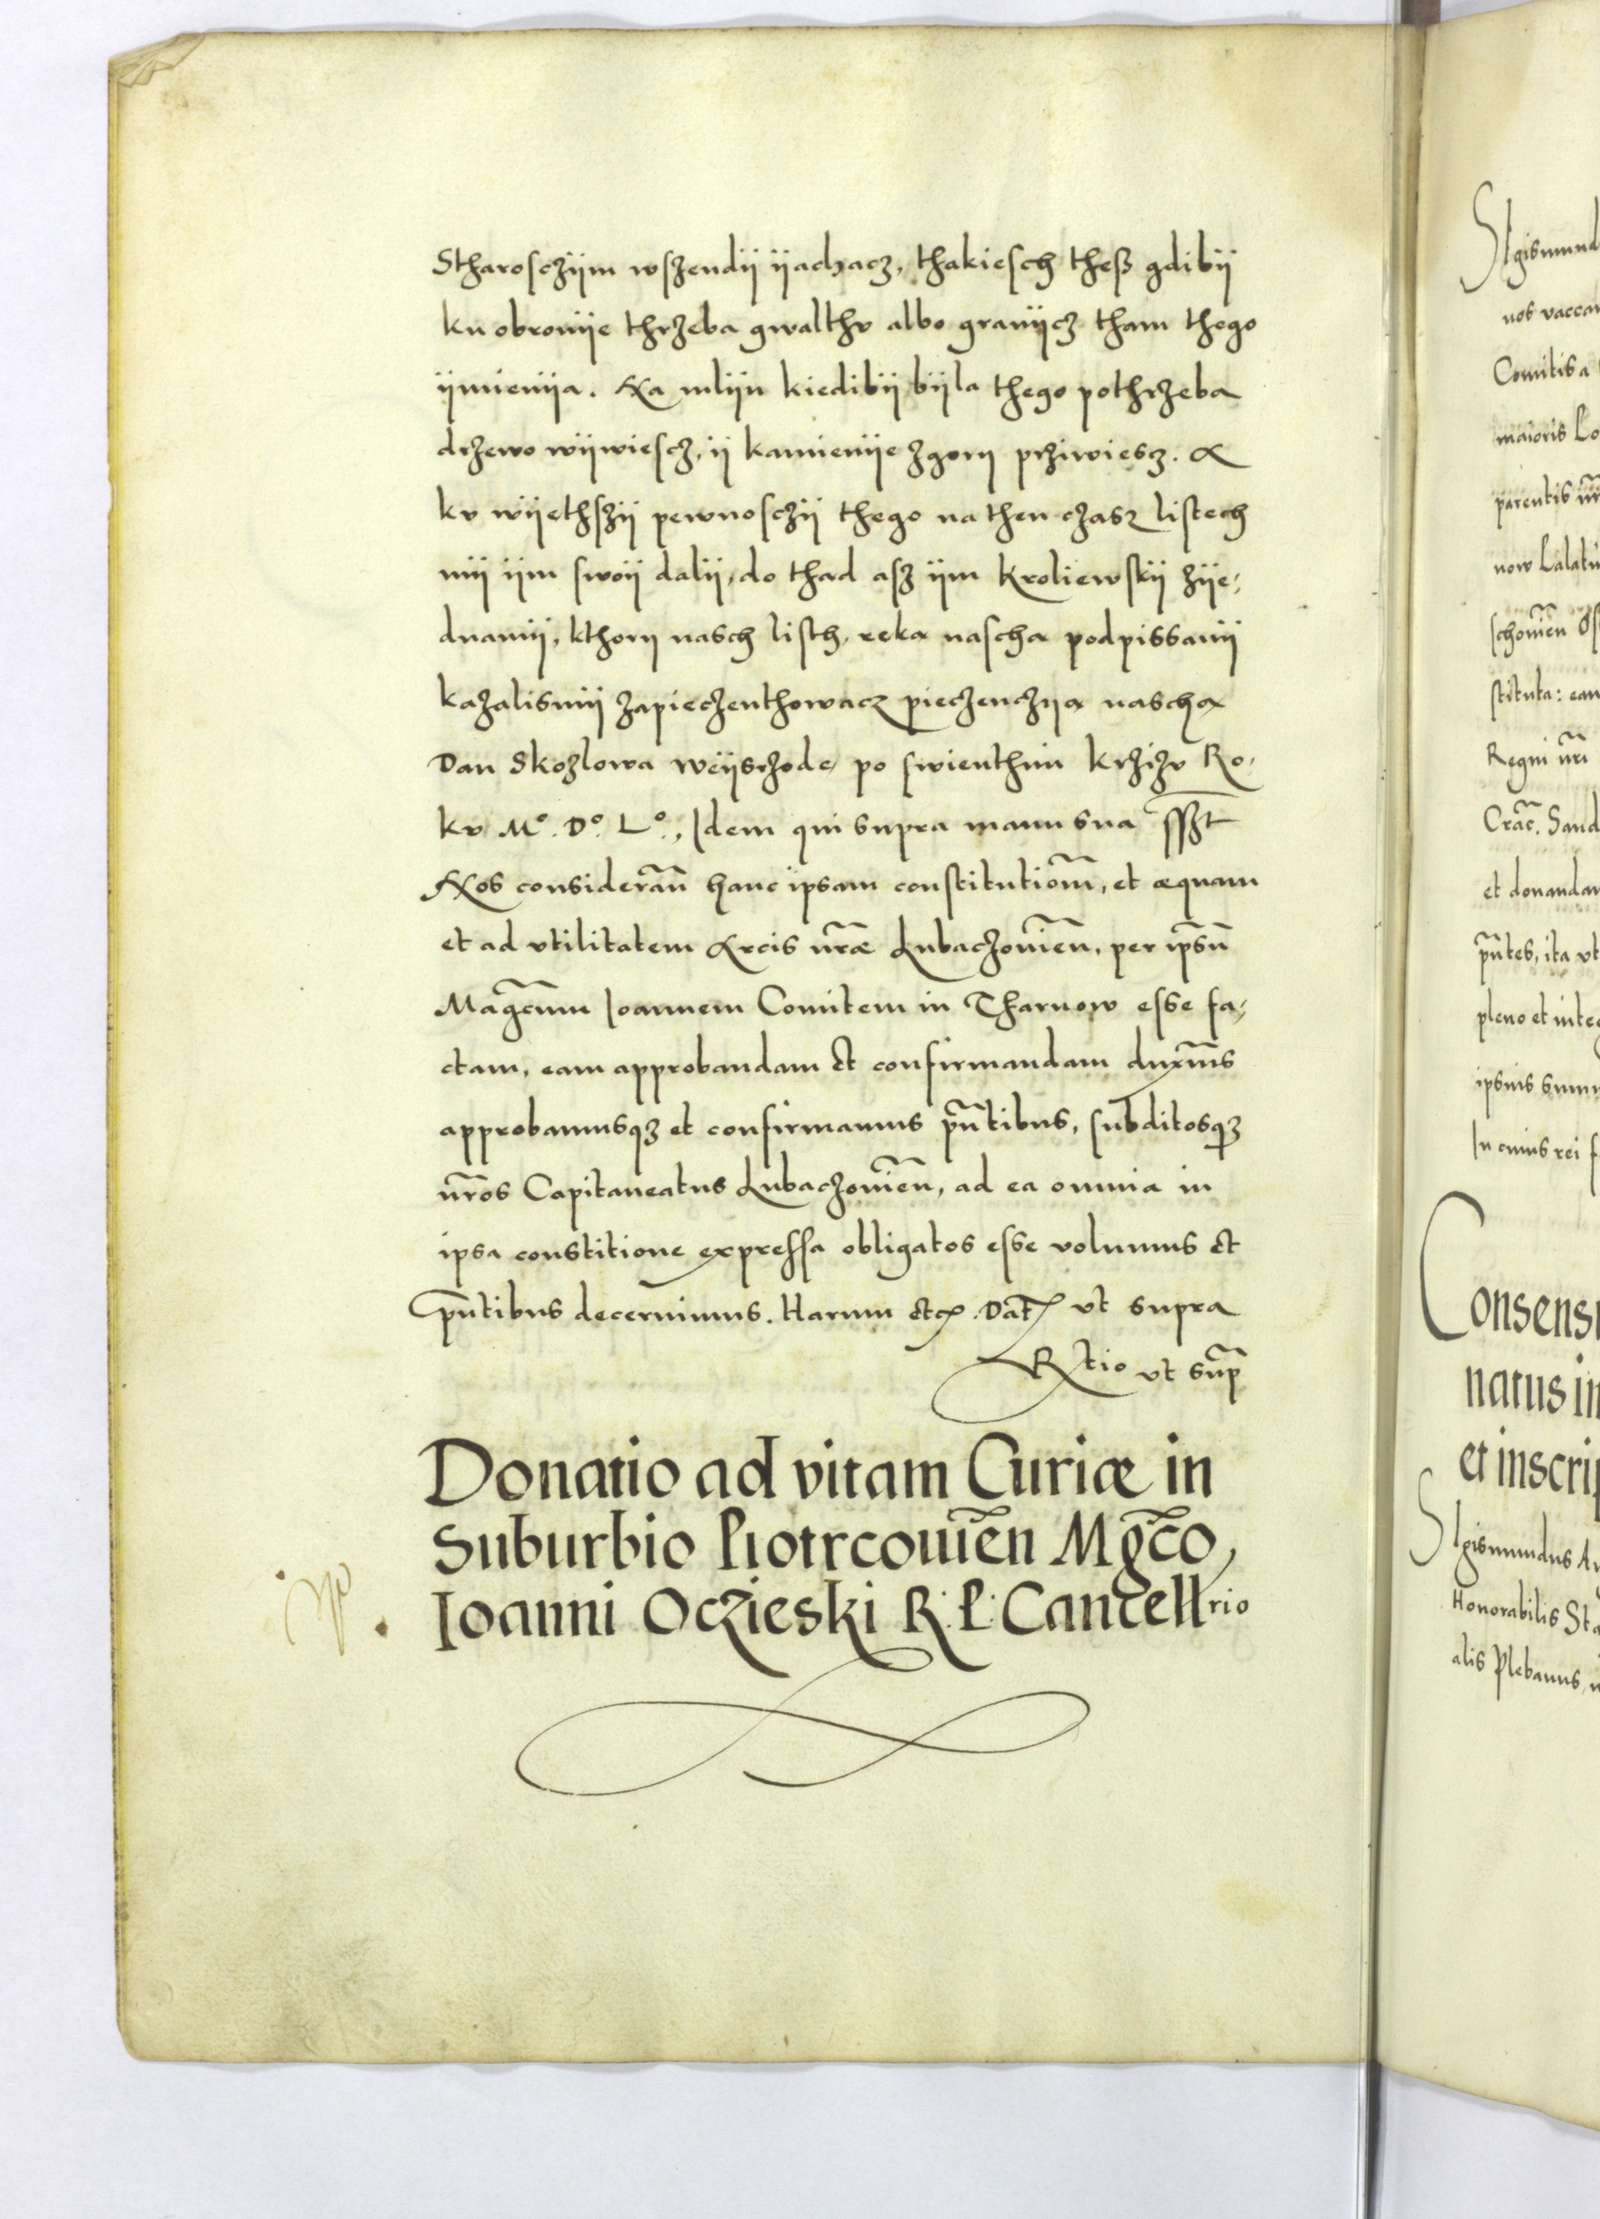 Stharosczÿm wszendÿ ÿachacz, thakiesch theß gdibÿ
ku obronÿe thrzeba gwalthv albo granÿcz tham thego
ÿmienÿa. Na mlÿn kiedibÿ bÿla thego pothrzeba
drzewo wÿwiescz, ÿ kamienÿe zgorÿ prziwiescz. A
kv wÿethszÿ pewnosczÿ thego na then czasz listech
mÿ ÿm swoÿ dalÿ, do thad asz ÿm Kroliewskÿ zÿe,
dnamÿ, kthorÿ nasch listh, reka nascha podpissanÿ
kazalismÿ zapieczenthowacz pieczenczÿa nascha
Dan Skozlowa wÿsrode po swienthim krzizv Ro,
kv Mº. Dº. Lº., Idem qui supra manu sua sszt
Nos considerañ hanc ipsam constitutioñm, et æquam
et ad vtilitatem Arcis nr̃æ Lubaczovieñ, per ip̃sũ
Mag̃cum Ioannem Comitem in Tharnow esse fa,
ctam, eam approbandam et confirmandam duxim̃s
approbamusqz et confirmamus pñtibus, subditosqz
nr̃os Capitaneatus Lubaczovieñ, ad ea omnia in
ipsa constitione expressa obligatos esse volumus et
pñtibus decernimus. Harum etc. Dat̃ vt supra
Rtio vt sup̃
Donatio ad vitam Curiæ in
Suburbio Piotrcovieñ Mg̃co
Ioanni Oczieski R: P: Cancellrio
SIgismund
nos vaccan
Comitis a
maioris
parentis nr̃
now
stituta: eam
Regni nr̃i
Crac̃. Sand
et donandam
pñtes, ita vt
pleno et integ
ipsius
In cuius rei f
Consensu
natus in
et inscrip
SIgismundus Au
Honorabilis Sta
alis Plebanus,